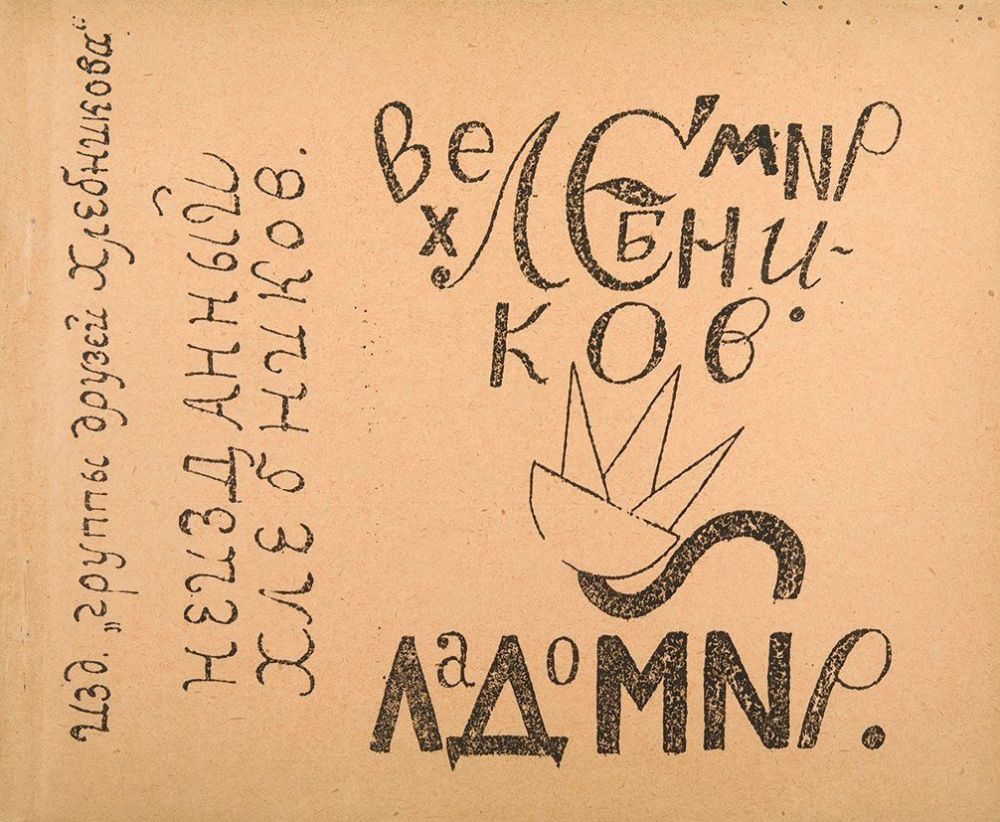 изд. „группы друзей Хлебникова“
НЕИЗДАННЫЙ
ХЛЕБНИКОВ.
ВеЛЕМИР
хЛЕБНИ-
КОВ.
ЛаДоМИР.